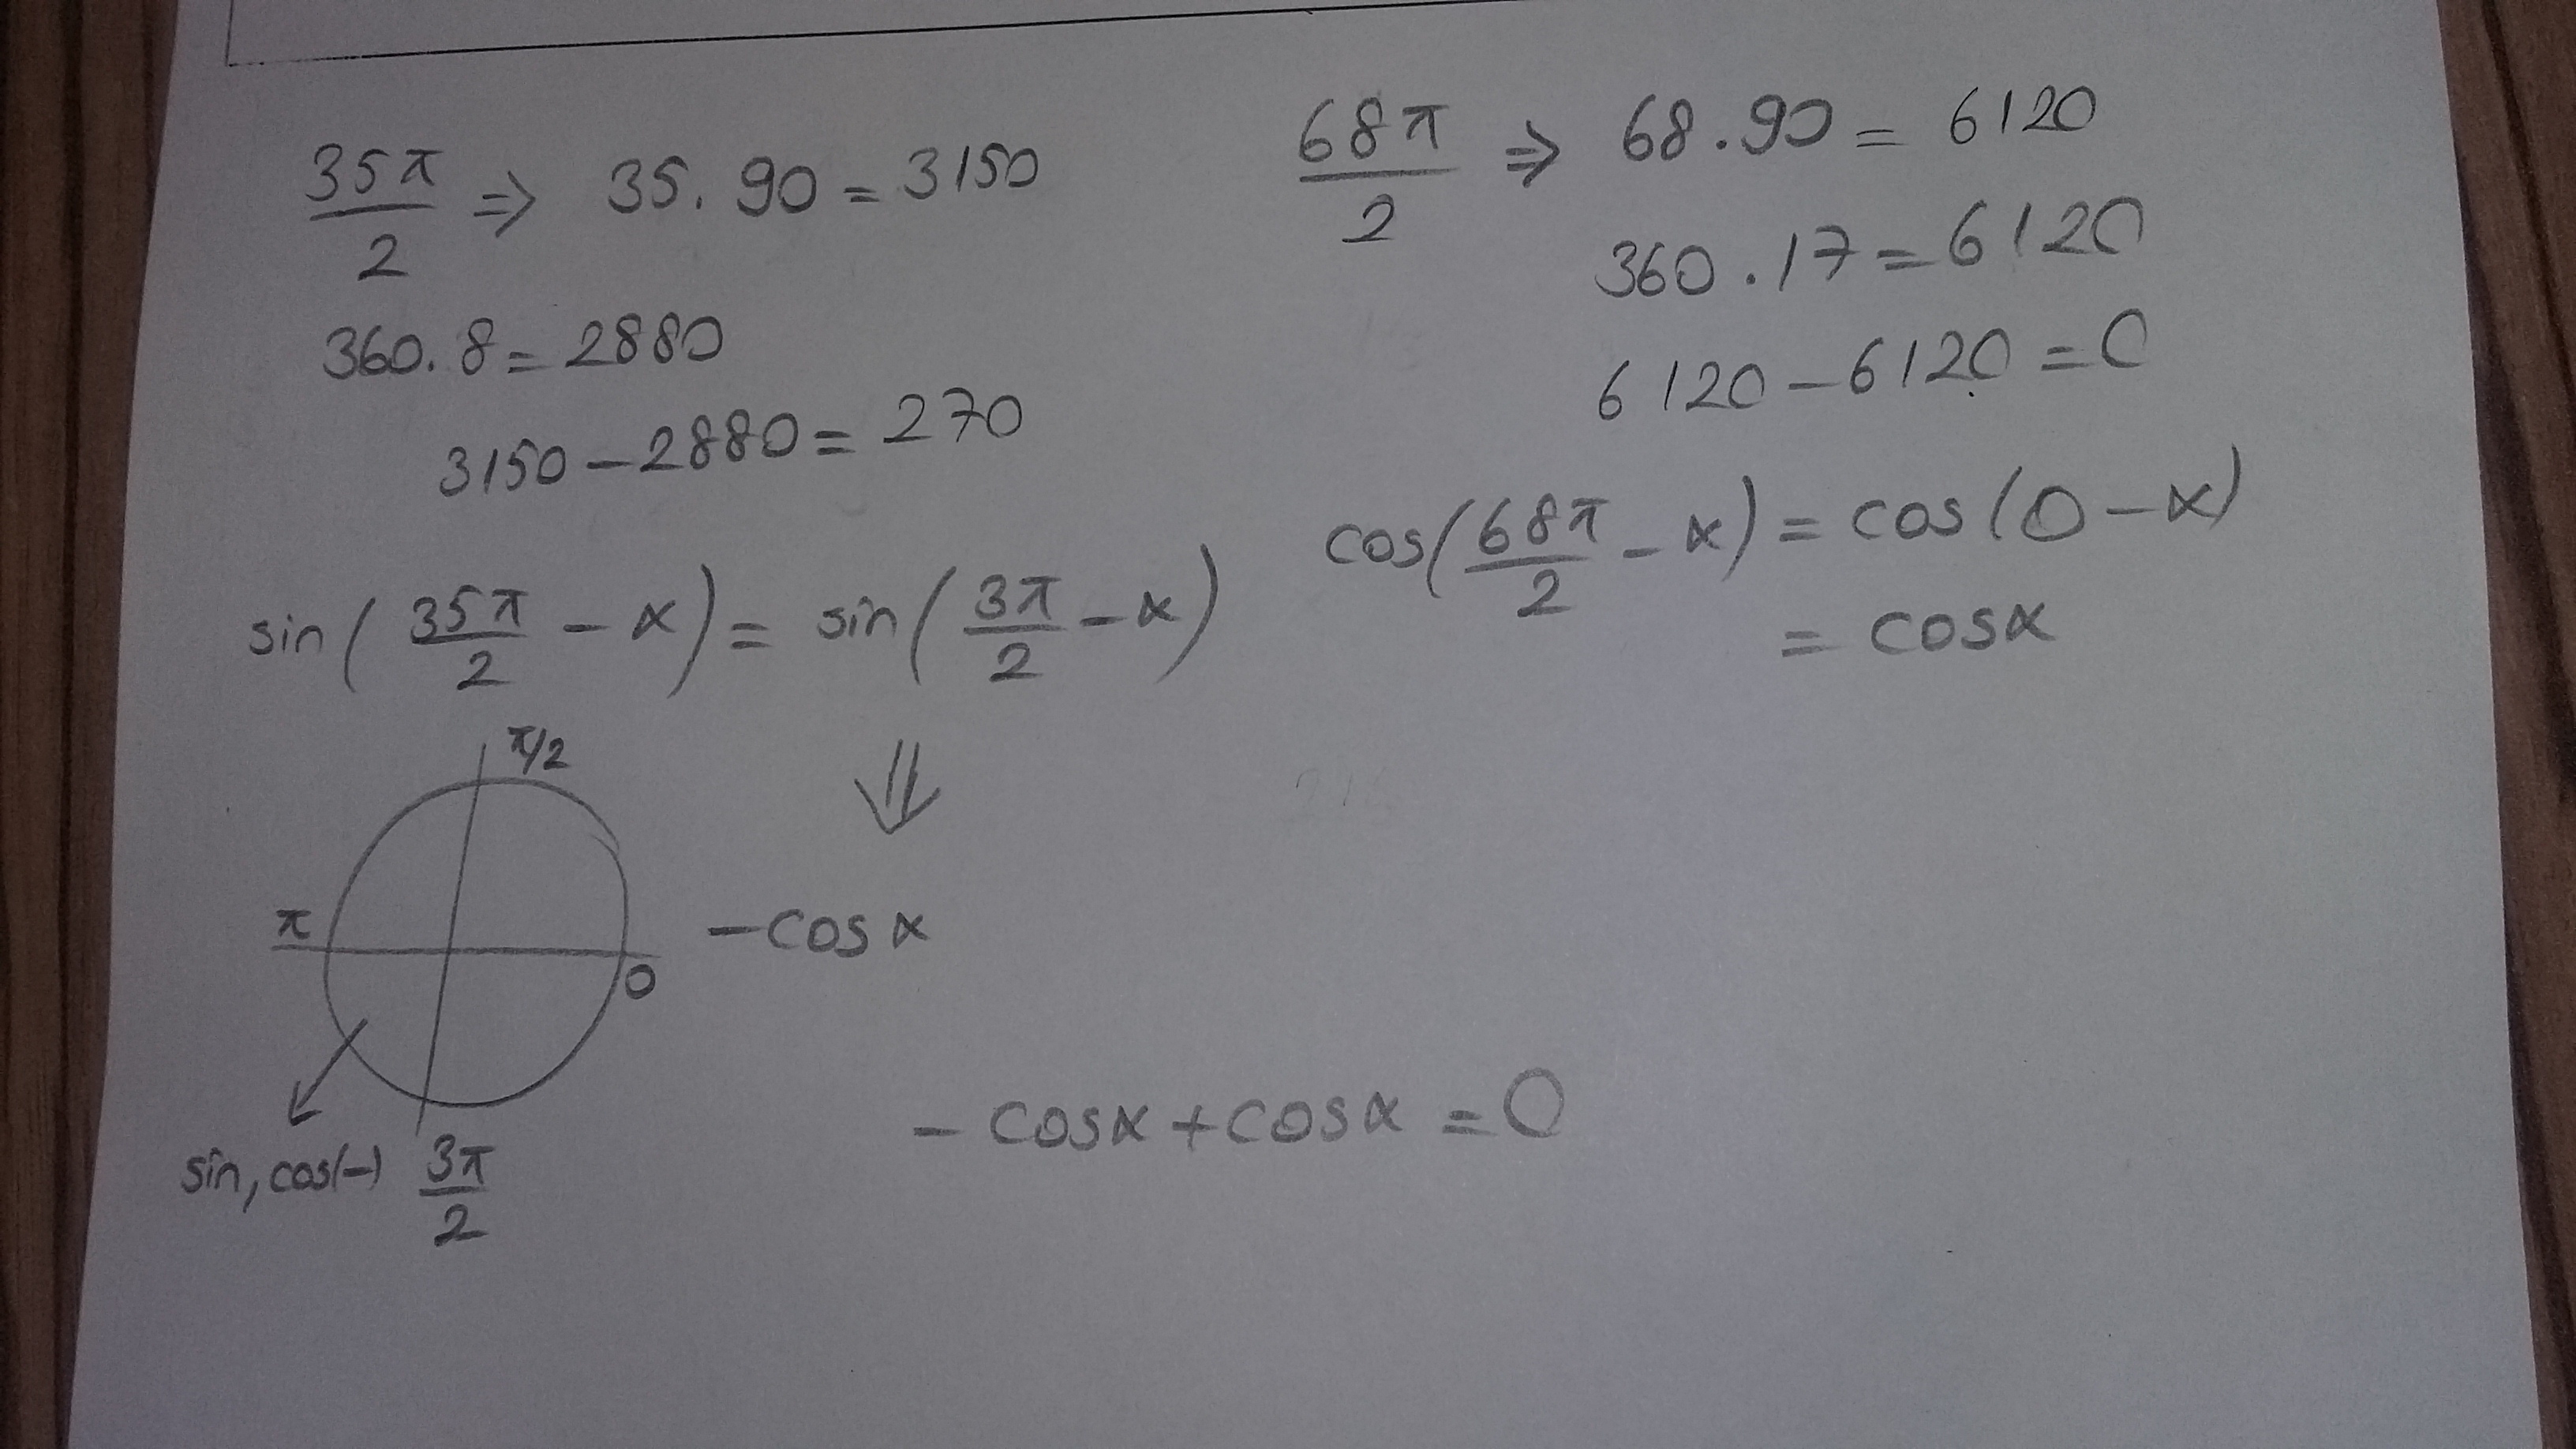 35π/2 ⇒ 35.90=3150
360.8=2880
3150−2880=270
sin(35π/2 − α)= sin(3π/2 − α)
⇓
π/2
π
0
−cosα
sin, cos(−)
3π/2
68π/2 ⇒ 68.90=6120
360.17=6120
6120−6120=0
cos(68π/2 − α)= cos(0−α)
= cosα
−cosα+cosα=0